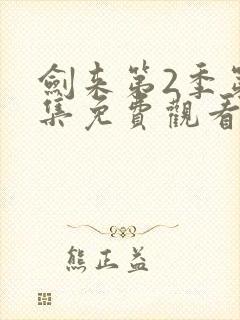 劍来第2季第
集免費觀看
熊正益